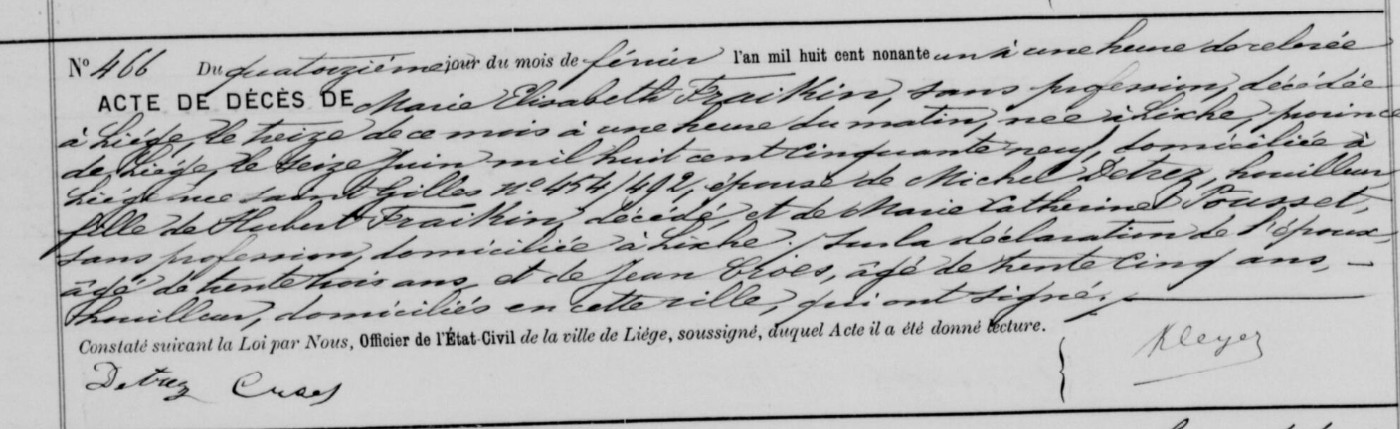 N° 466 Du quatorzième jour du mois de février l'an mil huit cent nonante un à une heure de relevée
ACTE DE DÉCÈS DE Marie Elisabeth Fraikin, sans profession, décédée
à Liége, le treize de ce mois à une heure du matin, née à Lixhe, province
de Liége, le seize Juin mil huit cent cinquante neuf, domiciliée à
Liége rue Saint Gilles n° 454/492, épouse de Michel Detrez, houilleur
fille de Hubert Fraikin, décédé, et de Marie Catherine Pousset,
sans profession, domiciliée à Lixhe. Sur la déclaration de l'époux,
âgé de trente trois ans, et de Jean, âgé de trente cinq ans, —
houilleur, domiciliés en cette ville, qui ont signé.
Constaté suivant la Loi par Nous, Officier de l'État-Civil de la ville de Liége, soussigné, duquel Acte il a été donné lecture.
Detrez Kleyer